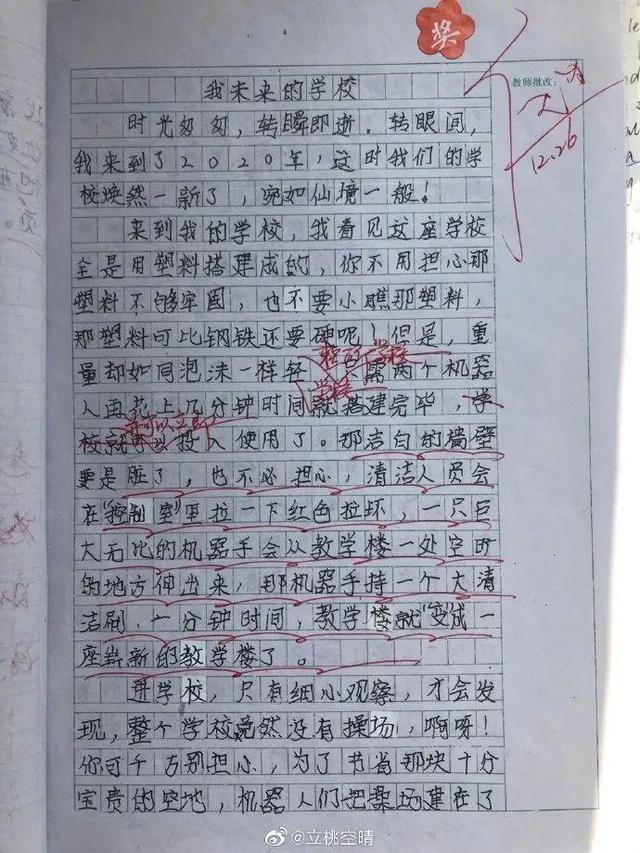 奖
教师批改:
优
12.26
我未来的学校
时光匆匆，转瞬即逝。转眼间，
我来到了2020年，这时我们的学
校焕然一新了，宛如仙境一般！
来到我的学校，我看见这座学校
全是用塑料搭建成的，你不用担心那
塑料不够牢固，也不要小瞧那塑料，
那塑料可比钢铁还要硬呢！但是，重
整的学校
量却如同泡沫一样轻，只需两个机器
学校
人再花上几分钟时间就搭建完毕，学
并可以立即
校就可以投入使用了。那洁白的墙壁
要是脏了，也不必担心，清洁人员会
在“控制室”里拉一下红色拉环，一只巨
大无比的机器手会从教学楼一处空旷
的地方伸出来，那机器手持一个大清
洁刷，一分钟时间，教学楼就“变”成一
座崭新的教学楼了。
进学校，只有细小观察，才会发
现，整个学校竟然没有操场，啊呀！
你可千万别担心，为了节省那块十分
宝贵的空地，机器人们把操场建在了
@立桃空晴